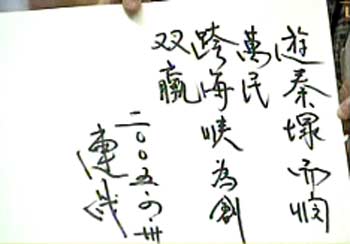 遊秦塚而憫
萬民
跨海峽為創
双贏
二〇〇五.四.卅
連戰